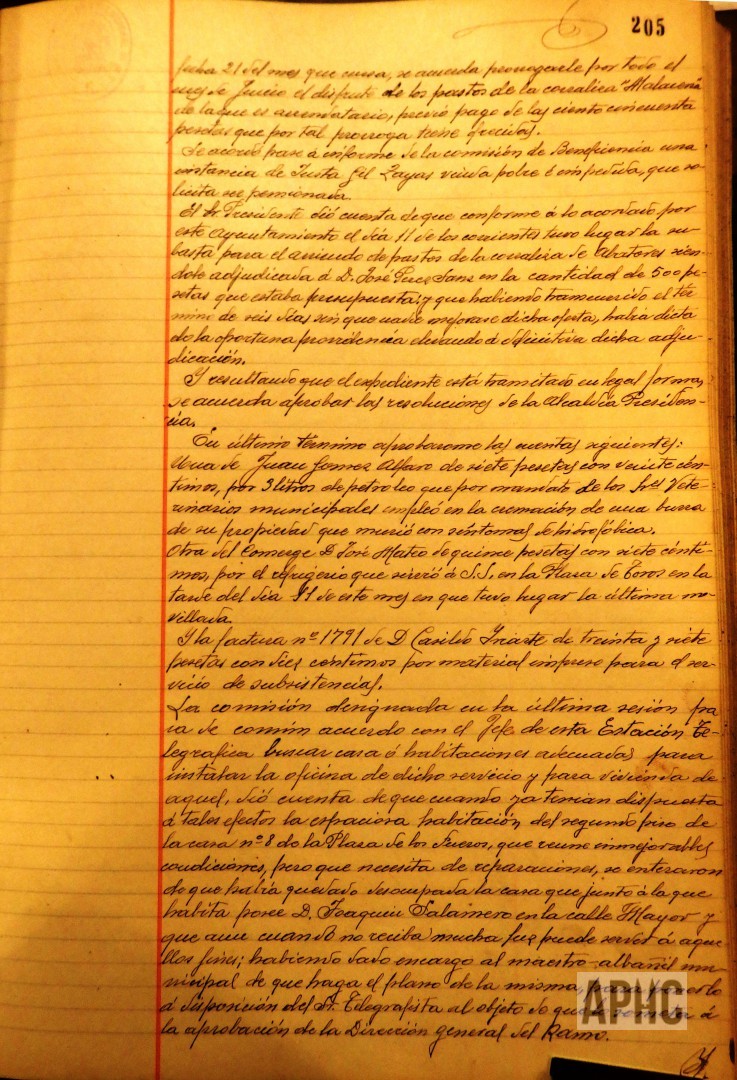 205
fecha 21 del mes que cursa, se acuerda prorrogarle por todo el
mes de Junio el disfrute de los pastos de la corraliza "Malacena"
de la que es arrendatario, previo pago de las ciento cincuenta
pesetas que por tal prorroga tiene ofrecidas.
Se acordó pase á informe de la comisión de Beneficencia una
instancia de Justa Gil Zayas viuda pobre é impedida, que so-
licita ser pensionada.
El Sr. Presidente dió cuenta de que conforme á lo acordado por
este Ayuntamiento el día 11 de los corrientes tuvo lugar la su-
basta para el arriendo de pastos de la corraliza de Abatores sien-
dole adjudicada á D. José Perez Sanz en la cantidad de 500 pe-
setas que estaba presupuesta; y que habiendo transcurrido el tér-
mino de seis días sin que nadie mejorase dicha oferta, había dicta
do la oportuna providencia elevando á definitiva dicha adju-
dicación.
Y resultando que el expediente está tramitado en legal forma,
se acuerda aprobar las resoluciones de la Alcaldía Presiden-
cia.
En último término aprobaronse las cuentas siguientes:
Una de Juan Gomez Alfaro de siete pesetas con veinte cén-
timos, por 3 litros de petroleo que por mandato de los Sres Vete-
rinarios municipales empleó en la cremación de una burra
de su propiedad que murió con síntomas de hidrofóbica.
Otra del Conserge D. José Mateo de quince pesetas con siete cénti-
mos, por el refrigerio que sirvió á S.S. en la Plaza de Toros en la
tarde del día 11 de este mes en que tuvo lugar la última no-
villada.
Y la factura nº 1791 de D. Casildo Iriarte de treinta y siete
pesetas con diez centimos por material impreso para el ser-
vicio de subsistencias.
La comisión designada en la última sesión pa
ra de común acuerdo con el Jefe de esta Estación Te-
legráfica buscar casa ó habitaciones adecuadas para
instalar la oficina de dicho servicio y para vivienda de
aquel, dió cuenta de que cuando ya tenian dispuesta
á tales efectos la espaciosa habitación del segundo piso de
la casa nº 8 de la Plaza de los Fueros, que reune inmejorables
condiciones, pero que necesita de reparaciones, se enteraron
de que había quedado desocupada la casa que junto á la que
habita posee D. Joaquin Salamero en la calle Mayor y
que aun cuando no reciba mucha luz puede servir á aque-
llos fines; habiendo dado encargo al maestro-albañil mu-
nicipal de que haga el plano de la misma, para ponerlo
á disposición del Sr. Telegrafista al objeto de que lo someta á
la aprobación de la Dirección general del Ramo.
APHC